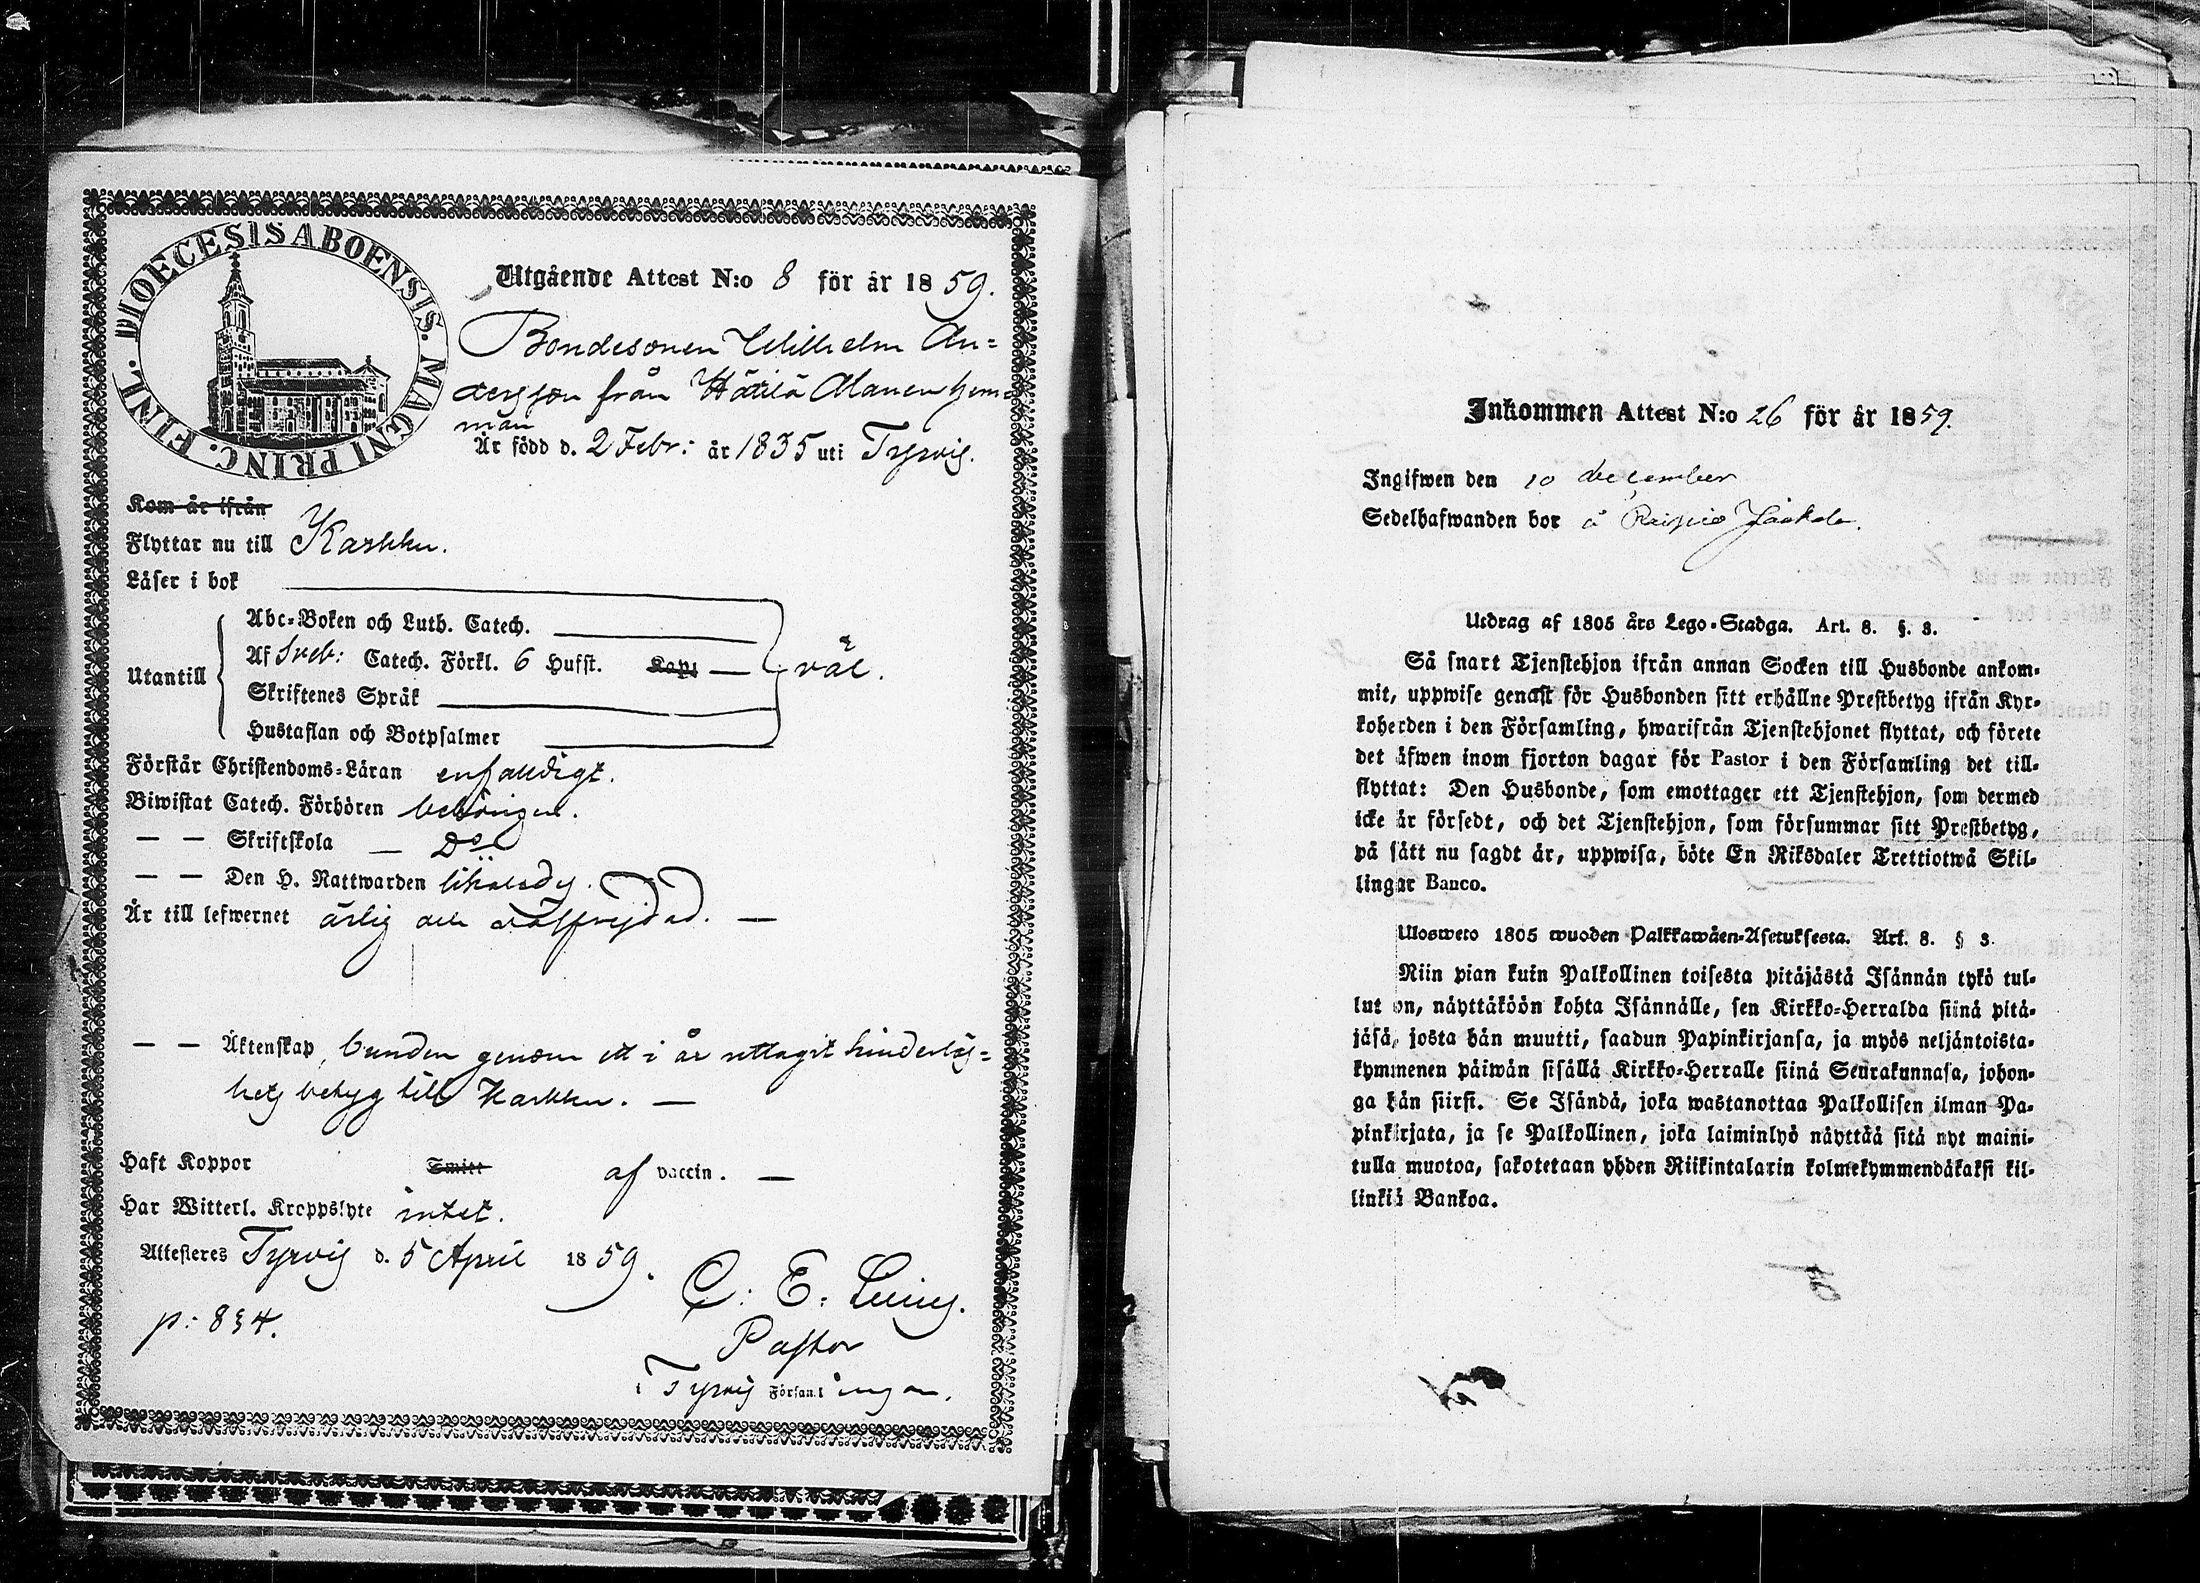 DIOECESIS ABOENSIS. MAGNI PRINC. FINL.
Utgående Attest N:o 8 för år 1859.
Bondesonen Wilhelm An=
dersson från Hätilä hem=
man
Är född d. 2 Febr: år 1835 uti Tyrvis.
Kom år ifrån
Flyttar nu till Karkku.
Läser i bok
Utantill
Abc=Boken och Luth. Catech.
Af Sveb: Catech. Förkl. 6 Hufst. Kap:
väl.
Skriftenes Språk
Hustaflan och Botpsalmer
Förstår Christendoms=Läran enfaldigt.
Biwistat Catech. Förhören behörigen.
— — Skriftskola — Do
— — Den H. Nattwarden likaledes.
Är till lefwernet ärlig och välfrejdad. —
— — Äktenskap, bunden genom ett i år uttagit hinderlös=
hets betyg till Karkku. —
Haft Koppor Smitt af vaccin. —
Har Witterl. Kroppslyte intet.
Attesteres Tyrvis d. 5 April 1859.
C: E:
p: 834.
Pastor
i Tyrvis Församlingen.
Inkommen Attest N:o 26 för år 1859.
Ingifwen den 10 december
Sedelhafwanden bor å Jaakola.
Utdrag af 1805 års Lego=Stadga. Art. 8. §. 3.
Så snart Tjenstehjon ifrån annan Socken till Husbonde ankom=
mit, uppwise genast för Husbonden sitt erhållne Prestbetyg ifrån Kyr=
koherden i den Församling, hwarifrån Tjenstehjonet flyttat, och förete
det äfwen inom fjorton dagar för Pastor i den Församling det till=
flyttat: Den Husbonde, som emottager ett Tjenstehjon, som dermed
icke är försedt, och det Tjenstehjon, som försummar sitt Prestbetyg,
på sätt nu sagdt är, uppwisa, böte En Riksdaler Trettiotwå Skil=
lingar Banco.
Uloswoto 1805 wuoden Palkkawäen=Asetuksesta. Art. 8. § 3.
Niin pian kuin Palkollinen toisesta pitäjästä Isännän tykö tul=
lut on, näyttäköön kohta Isännälle, sen Kirkko=Herralda siinä pitä=
jäsä, josta hän muutti, saadun Papinkirjansa, ja myös neljäntoista=
kymmenen päiwän sisällä Kirkko=Herralle siinä Seurakunnasa, johon=
ga hän siirsi. Se Isändä, joka wastanottaa Palkollisen ilman Pa=
pinkirjata, ja se Palkollinen, joka laiminlyö näyttää sitä nyt maini=
tulla muotoa, sakotetaan yhden Riikintalarin kolmekymmendäkaksi kil=
linkiä Bankoa.